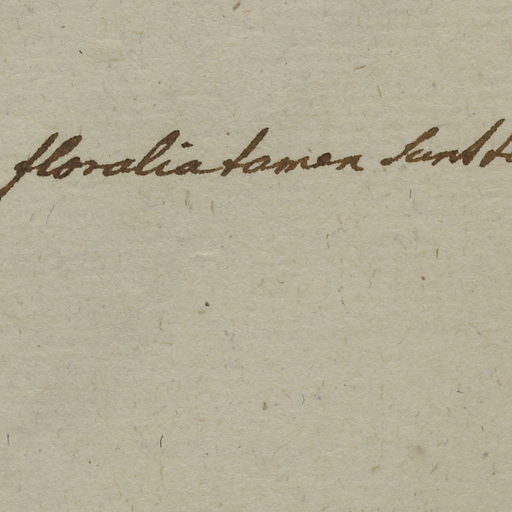 floralia tamen sunt